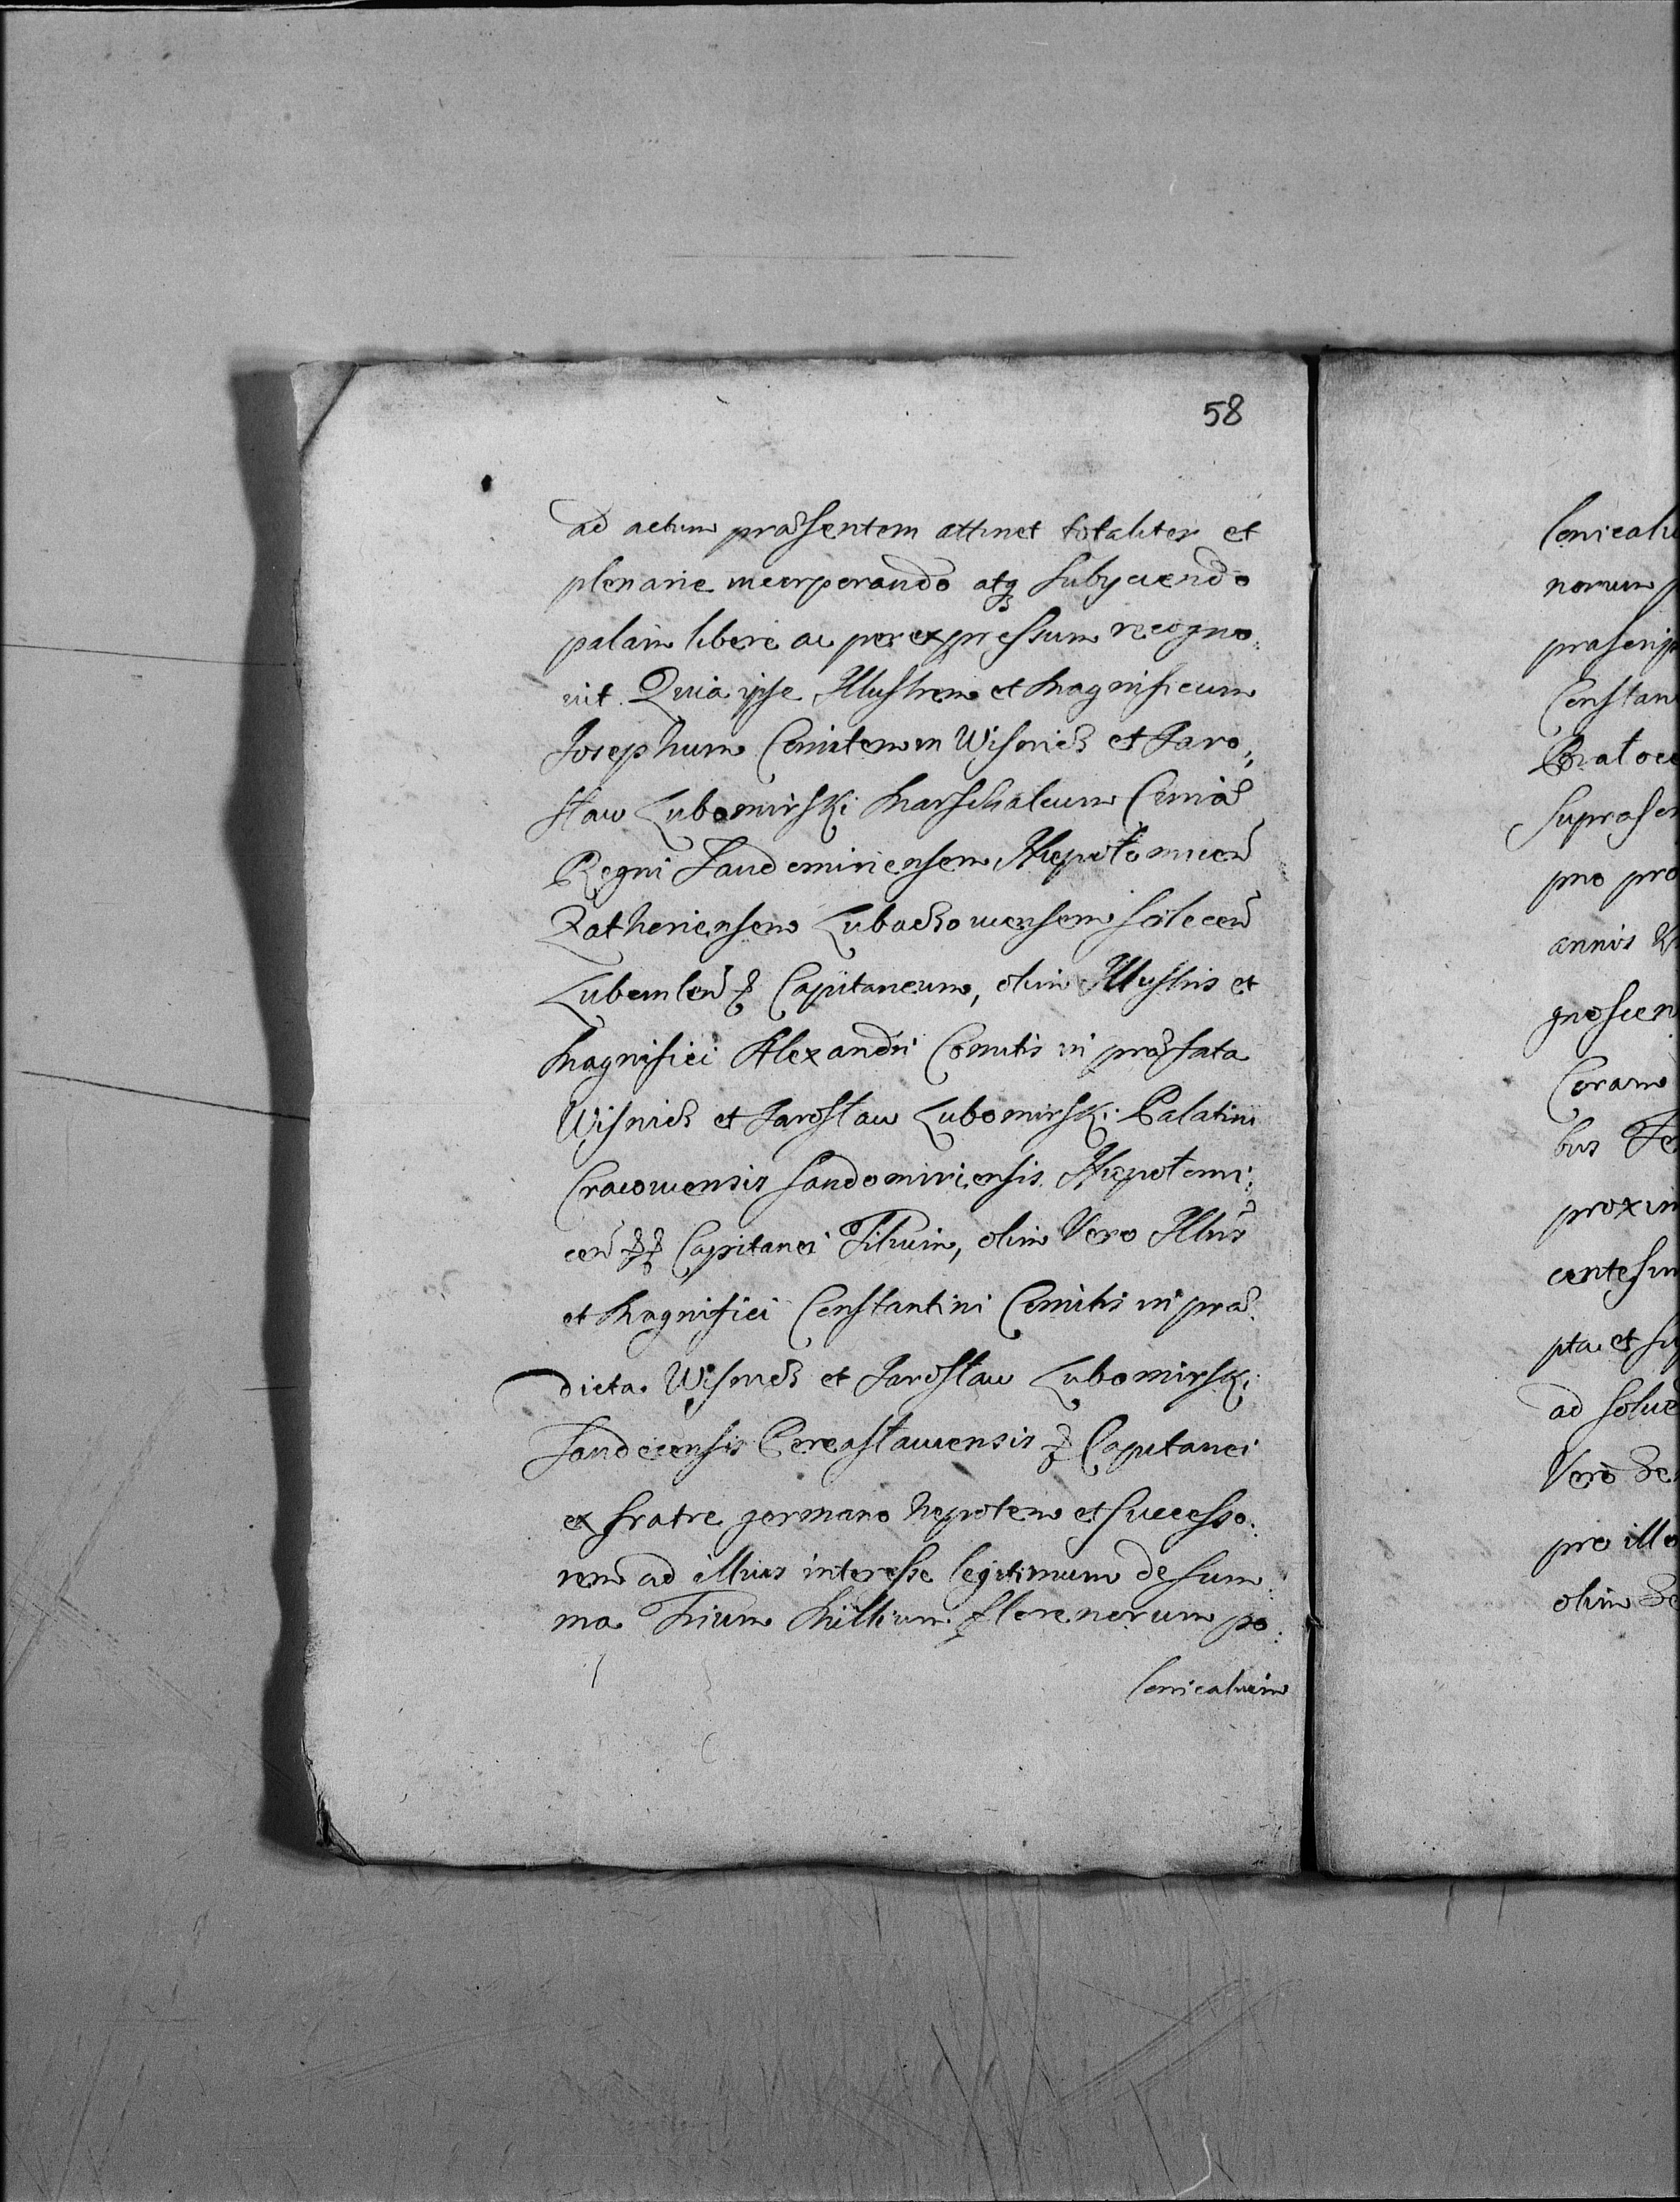 58
ad actum præsentem attinet totaliter et
plenarie incorporando atq subyciendo
palam libere ac per expressum recogno:
vit. Quia ipse Illustrem et Magnificum
Josephum Comitem in Wisnicz et Jaro,,
slaw Lubomirski Marschalcum Curiæ
Regni Sandomiriensem Niepolomicen
Zathoriensem Lubaczowiensem Solecen
Lubomlen & Capitaneum, olim Illustris et
Magnifici Alexandri Comitis in præfata
Wisnicz et Jaroslaw Lubomirski Palatini
Cracoviensis Sandomiriensis Niepolomi:
cen && Capitanei Filium, olim Vero Illus
et Magnifici Constantini Comitis in præ
dicta Wisnicz et Jaroslaw Lubomirski
Sandecensis Bereaslawiensis & Capitanei
ex fratre germano Nepotem et Successo:
rem ad illius interesse legitimum de Sum
ma Trium Millium florenorum po:
lonicalium
lonicaliu
norum p
præscrip
Constan
suprascr
pro pro
annis
gnoscen
Coram
bus Te
proxim
centesim
pta et su
ad solve
Vero de
pro illo
olim de